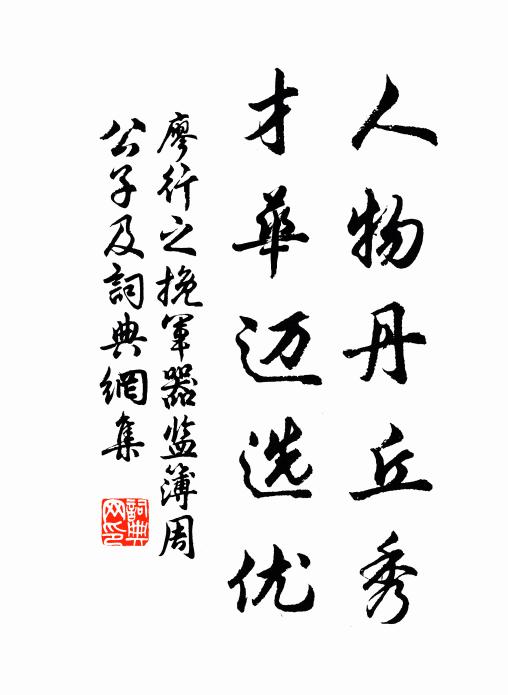 人物丹丘秀
才華迈选优
廖行之挽軍器监簿周
公子及詞典網集
詞典网印